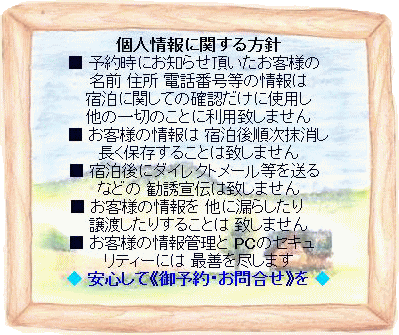 個人情報に関する方針
■ 予約時にお知らせ頂いたお客様の
名前 住所 電話番号等の情報は
宿泊に関しての確認だけに使用し
他の一切のことに利用致しません
■ お客様の情報は 宿泊後順次抹消し
長く保存することは致しません
■ 宿泊後にダイレクトメール等を送る
などの 勧誘宣伝は致しません
■ お客様の情報を 他に漏らしたり
譲渡したりすることは 致しません
■ お客様の情報管理と PCのセキュ
リティーには 最善を尽します
◆ 安心して《御予約・お問合せ》を ◆